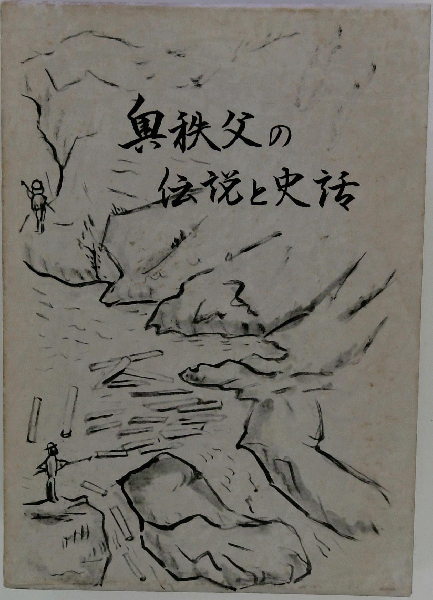 奥秩父の
伝説と史話